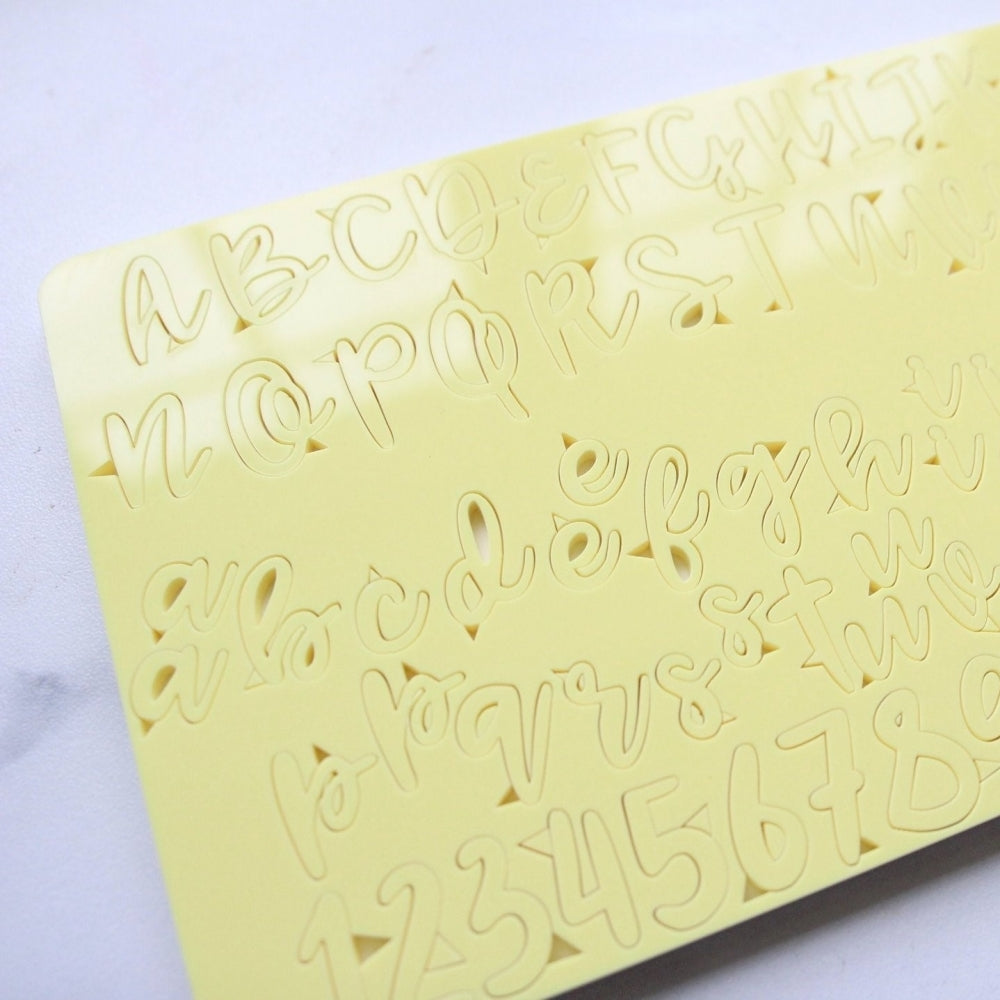 A B C D E F G H I J
N O P Q R S T U
e i
a b c d e f g h i
a
s u
p p q r s t u
1 2 3 4 5 6 7 8